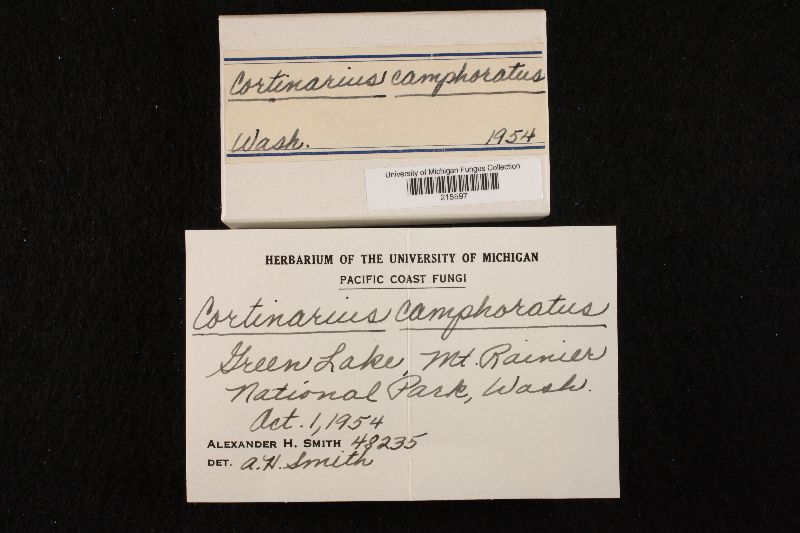 Cortinarius camphoratus
Wash. 1954
University of Michigan Fungus Collection
215597
HERBARIUM OF THE UNIVERSITY OF MICHIGAN
PACIFIC COAST FUNGI
Cortinarius camphoratus
Green Lake, Mt. Rainier
National Park, Wash.
Oct. 1, 1954
ALEXANDER H. SMITH 48235
DET. A.H. Smith